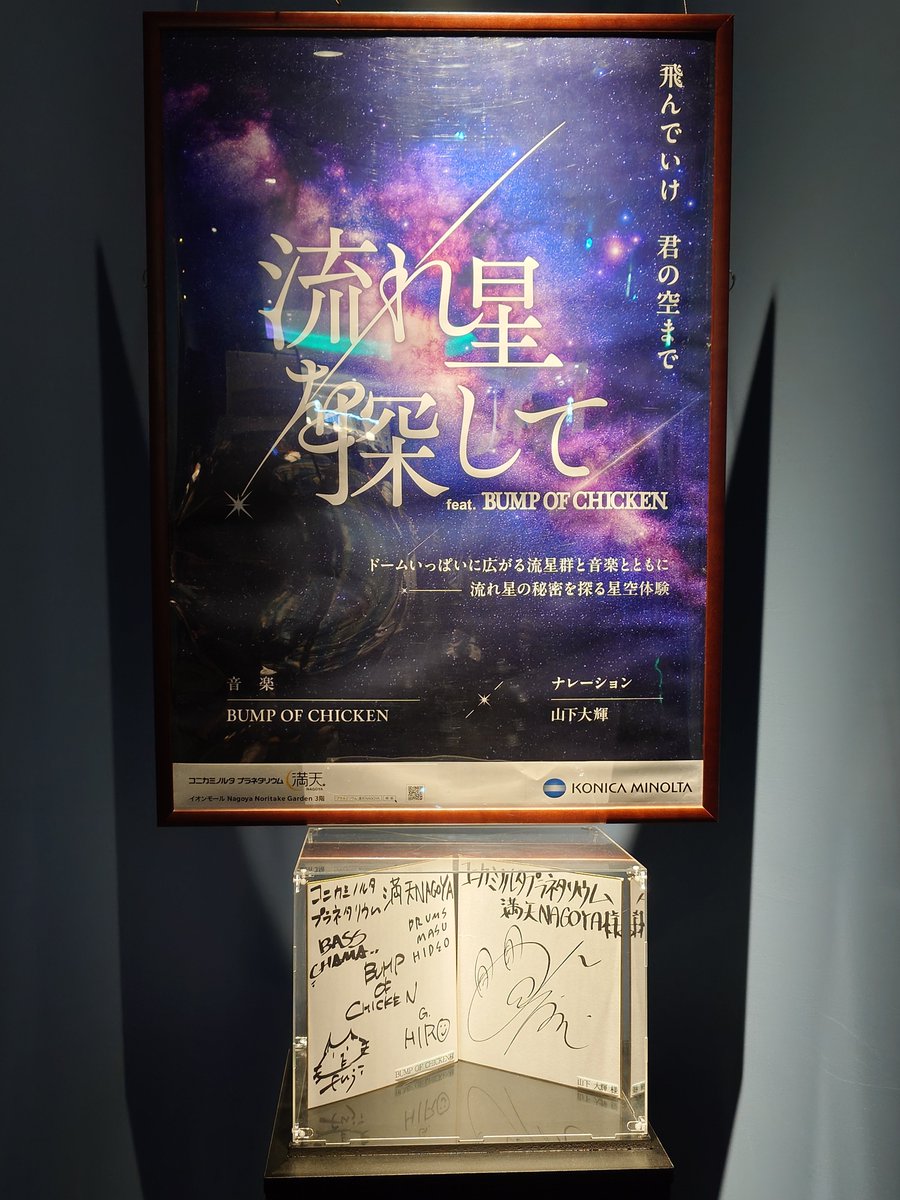 飛んでいけ 君の空まで
流れ星
を探して
feat. BUMP OF CHICKEN
ドームいっぱいに広がる流星群と音楽とともに
流れ星の秘密を探る星空体験
音 楽
BUMP OF CHICKEN
ナレーション
山下大輝
コニカミノルタ プラネタリウム 満天
NAGOYA
イオンモール Nagoya Noritake Garden 3階
KONICA MINOLTA
コニカミノルタ
プラネタリウム 満天NAGOYA
DRUMS
MASU
HIDEO
BASS
CHAMA..
BUMP
OF
CHICKEN
G.
HIRO
fuji
BUMP OF CHICKEN様
コニカミノルタプラネタリウム
満天NAGOYA様
山下 大輝 様